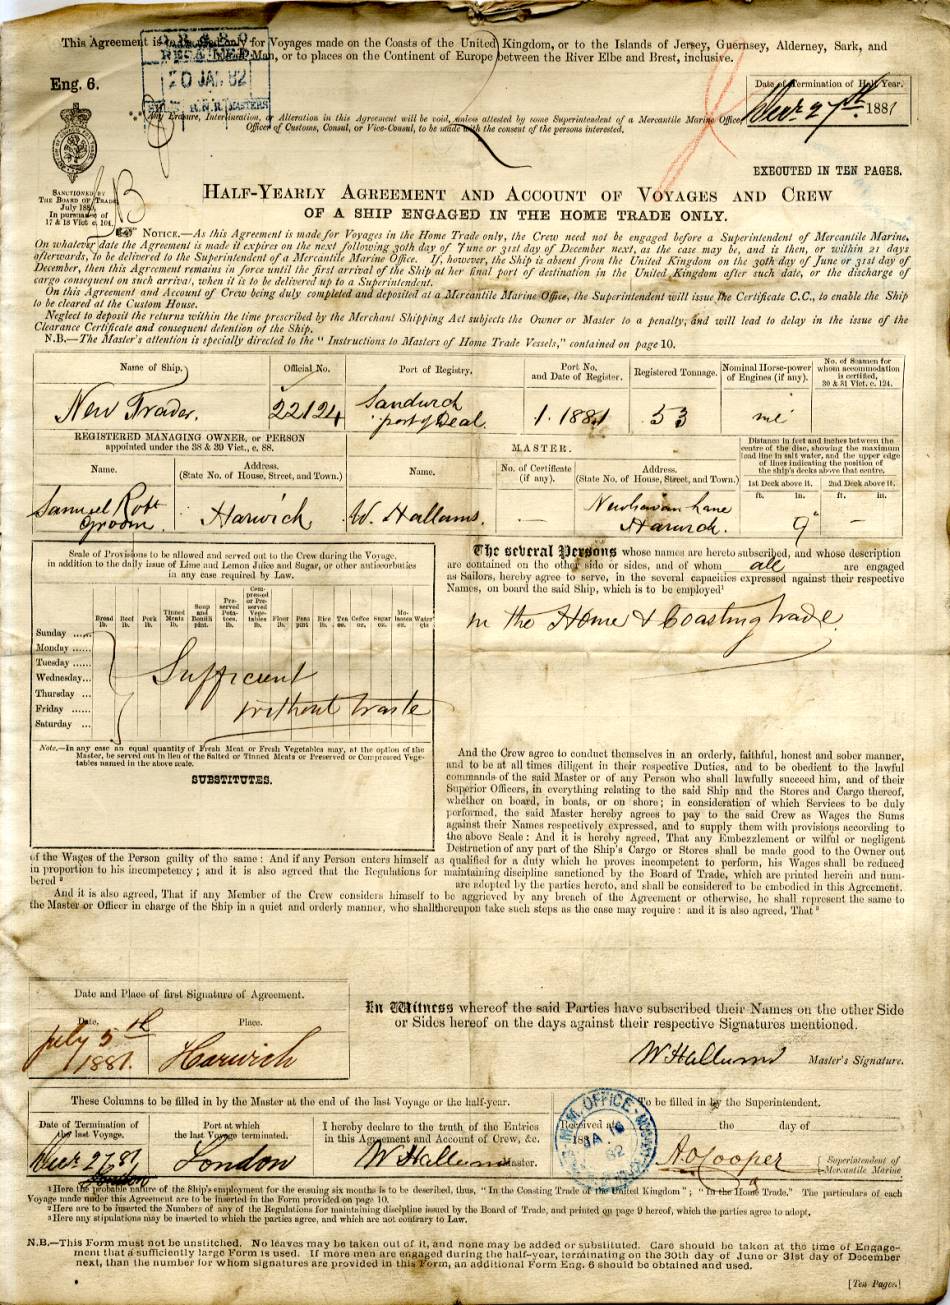 This Agreement is only for Voyages made on the Coasts of the United Kingdom, or to the Islands of Jersey, Guernsey, Alderney, Sark, and
Man, or to places on the Continent of Europe between the River Elbe and Brest, inclusive.
20 JAN. 82
R.N.R. MASTERS
Eng. 6.
Date of Termination of Half Year.
Decr. 27th 1881
Any Erasure, Interlineation, or Alteration in this Agreement will be void, unless attested by some Superintendent of a Mercantile Marine Office,
Officer of Customs, Consul, or Vice-Consul, to be made with the consent of the persons interested.
EXECUTED IN TEN PAGES.
SANCTIONED BY
THE BOARD OF TRADE
July 1880,
In pursuance of
17 & 18 Vict c. 104.
B
HALF-YEARLY AGREEMENT AND ACCOUNT OF VOYAGES AND CREW
OF A SHIP ENGAGED IN THE HOME TRADE ONLY.
NOTICE.—As this Agreement is made for Voyages in the Home Trade only, the Crew need not be engaged before a Superintendent of Mercantile Marine.
On whatever date the Agreement is made it expires on the next following 30th day of June or 31st day of December next, as the case may be, and is then, or within 21 days
afterwards, to be delivered to the Superintendent of a Mercantile Marine Office. If, however, the Ship is absent from the United Kingdom on the 30th day of June or 31st day of
December, then this Agreement remains in force until the first arrival of the Ship at her final port of destination in the United Kingdom after such date, or the discharge of
cargo consequent on such arrival, when it is to be delivered up to a Superintendent.
On this Agreement and Account of Crew being duly completed and deposited at a Mercantile Marine Office, the Superintendent will issue the Certificate C.C., to enable the Ship
to be cleared at the Custom House.
Neglect to deposit the returns within the time prescribed by the Merchant Shipping Act subjects the Owner or Master to a penalty, and will lead to delay in the issue of the
Clearance Certificate and consequent detention of the Ship.
N.B.—The Master's attention is specially directed to the "Instructions to Masters of Home Trade Vessels," contained on page 10.
Name of Ship. Official No. Port of Registry. Port No. and Date of Register. Registered Tonnage. Nominal Horse-power of Engines (if any). No. of Seamen for whom accommodation is certified, 30 & 31 Vict. c. 124.
New Trader. 22124 Sandwich port of Deal. 1. 1881 53 nil
REGISTERED MANAGING OWNER, OR PERSON
appointed under the 38 & 39 Vict., c. 88.
MASTER.
Distance in feet and inches between the
centre of the disc, showing the maximum
load line in salt water, and the upper edge
of lines indicating the position of
the ship's decks above that centre.
Name. Address. (State No. of House, Street, and Town.) Name. No. of Certificate (if any). Address. (State No. of House, Street, and Town.) 1st Deck above it. 2nd Deck above it.
ft. in. ft. in.
Samuel Robt Groom. Harwich W. Hallums. — Newhaven Lane Harwich. 9" —
Scale of Provisions to be allowed and served out to the Crew during the Voyage,
in addition to the daily issue of Lime and Lemon Juice and Sugar, or other antiscorbutics
in any case required by Law.
Bread lb. Beef lb. Pork lb. Tinned Meats lb. Soup and Bouilli pint. Preserved Potatoes. lb. Compressed or Preserved Vegetables lb. Flour lb. Peas pint Rice lb. Tea oz. Coffee oz. Sugar oz. Molasses oz. Water qts
Sunday ....
Monday .....
Tuesday ....
Wednesday...
Thursday ....
Friday .....
Saturday ....
Sufficient
without waste
Note.—In any case an equal quantity of Fresh Meat or Fresh Vegetables may, at the option of the
Master, be served out in lieu of the Salted or Tinned Meats or Preserved or Compressed Vege-
tables named in the above scale.
SUBSTITUTES.
The several Persons whose names are hereto subscribed, and whose description
are contained on the other side or sides, and of whom all are engaged
as Sailors, hereby agree to serve, in the several capacities expressed against their respective
Names, on board the said Ship, which is to be employed¹
in the Home & Coasting trade.
And the Crew agree to conduct themselves in an orderly, faithful, honest and sober manner,
and to be at all times diligent in their respective Duties, and to be obedient to the lawful
commands of the said Master or of any Person who shall lawfully succeed him, and of their
Superior Officers, in everything relating to the said Ship and the Stores and Cargo thereof,
whether on board, in boats, or on shore; in consideration of which Services to be duly
performed, the said Master hereby agrees to pay to the said Crew as Wages the Sums
against their Names respectively expressed, and to supply them with provisions according to
the above Scale: And it is hereby agreed, That any Embezzlement or wilful or negligent
Destruction of any part of the Ship's Cargo or Stores shall be made good to the Owner out
of the Wages of the Person guilty of the same: And if any Person enters himself as qualified for a duty which he proves incompetent to perform, his Wages shall be reduced
in proportion to his incompetency; and it is also agreed that the Regulations for maintaining discipline sanctioned by the Board of Trade, which are printed herein and num-
bered ² are adopted by the parties hereto, and shall be considered to be embodied in this Agreement.
And it is also agreed, That if any Member of the Crew considers himself to be aggrieved by any breach of the Agreement or otherwise, he shall represent the same to
the Master or Officer in charge of the Ship in a quiet and orderly manner, who shall thereupon take such steps as the case may require: and it is also agreed, That ³
Date and Place of first Signature of Agreement.
Date. Place.
July 5th 1881. Harwich
In Witness whereof the said Parties have subscribed their Names on the other Side
or Sides hereof on the days against their respective Signatures mentioned.
W Hallums Master's Signature.
These Columns to be filled in by the Master at the end of the last Voyage or the half-year.
To be filled in by the Superintendent.
Date of Termination of the last Voyage. Port at which the last Voyage terminated. I hereby declare to the truth of the Entries in this Agreement and Account of Crew, &c.
Received at the day of
188
Decr 27 81 London W Hallums Master.
London
M.M. OFFICE
JA 82
A. O. Cooper Superintendent of Mercantile Marine
¹ Here the probable nature of the Ship's employment for the ensuing six months is to be described, thus, "In the Coasting Trade of the United Kingdom"; "In the Home Trade." The particulars of each
Voyage made under this Agreement are to be inserted in the Form provided on page 10.
² Here are to be inserted the Numbers of any of the Regulations for maintaining discipline issued by the Board of Trade, and printed on page 9 hereof, which the parties agree to adopt.
³ Here any stipulations may be inserted to which the parties agree, and which are not contrary to Law.
N.B.—This Form must not be unstitched. No leaves may be taken out of it, and none may be added or substituted. Care should be taken at the time of Engage-
ment that a sufficiently large Form is used. If more men are engaged during the half-year, terminating on the 30th day of June or 31st day of December
next, than the number for whom signatures are provided in this Form, an additional Form Eng. 6 should be obtained and used.
[Ten Pages]